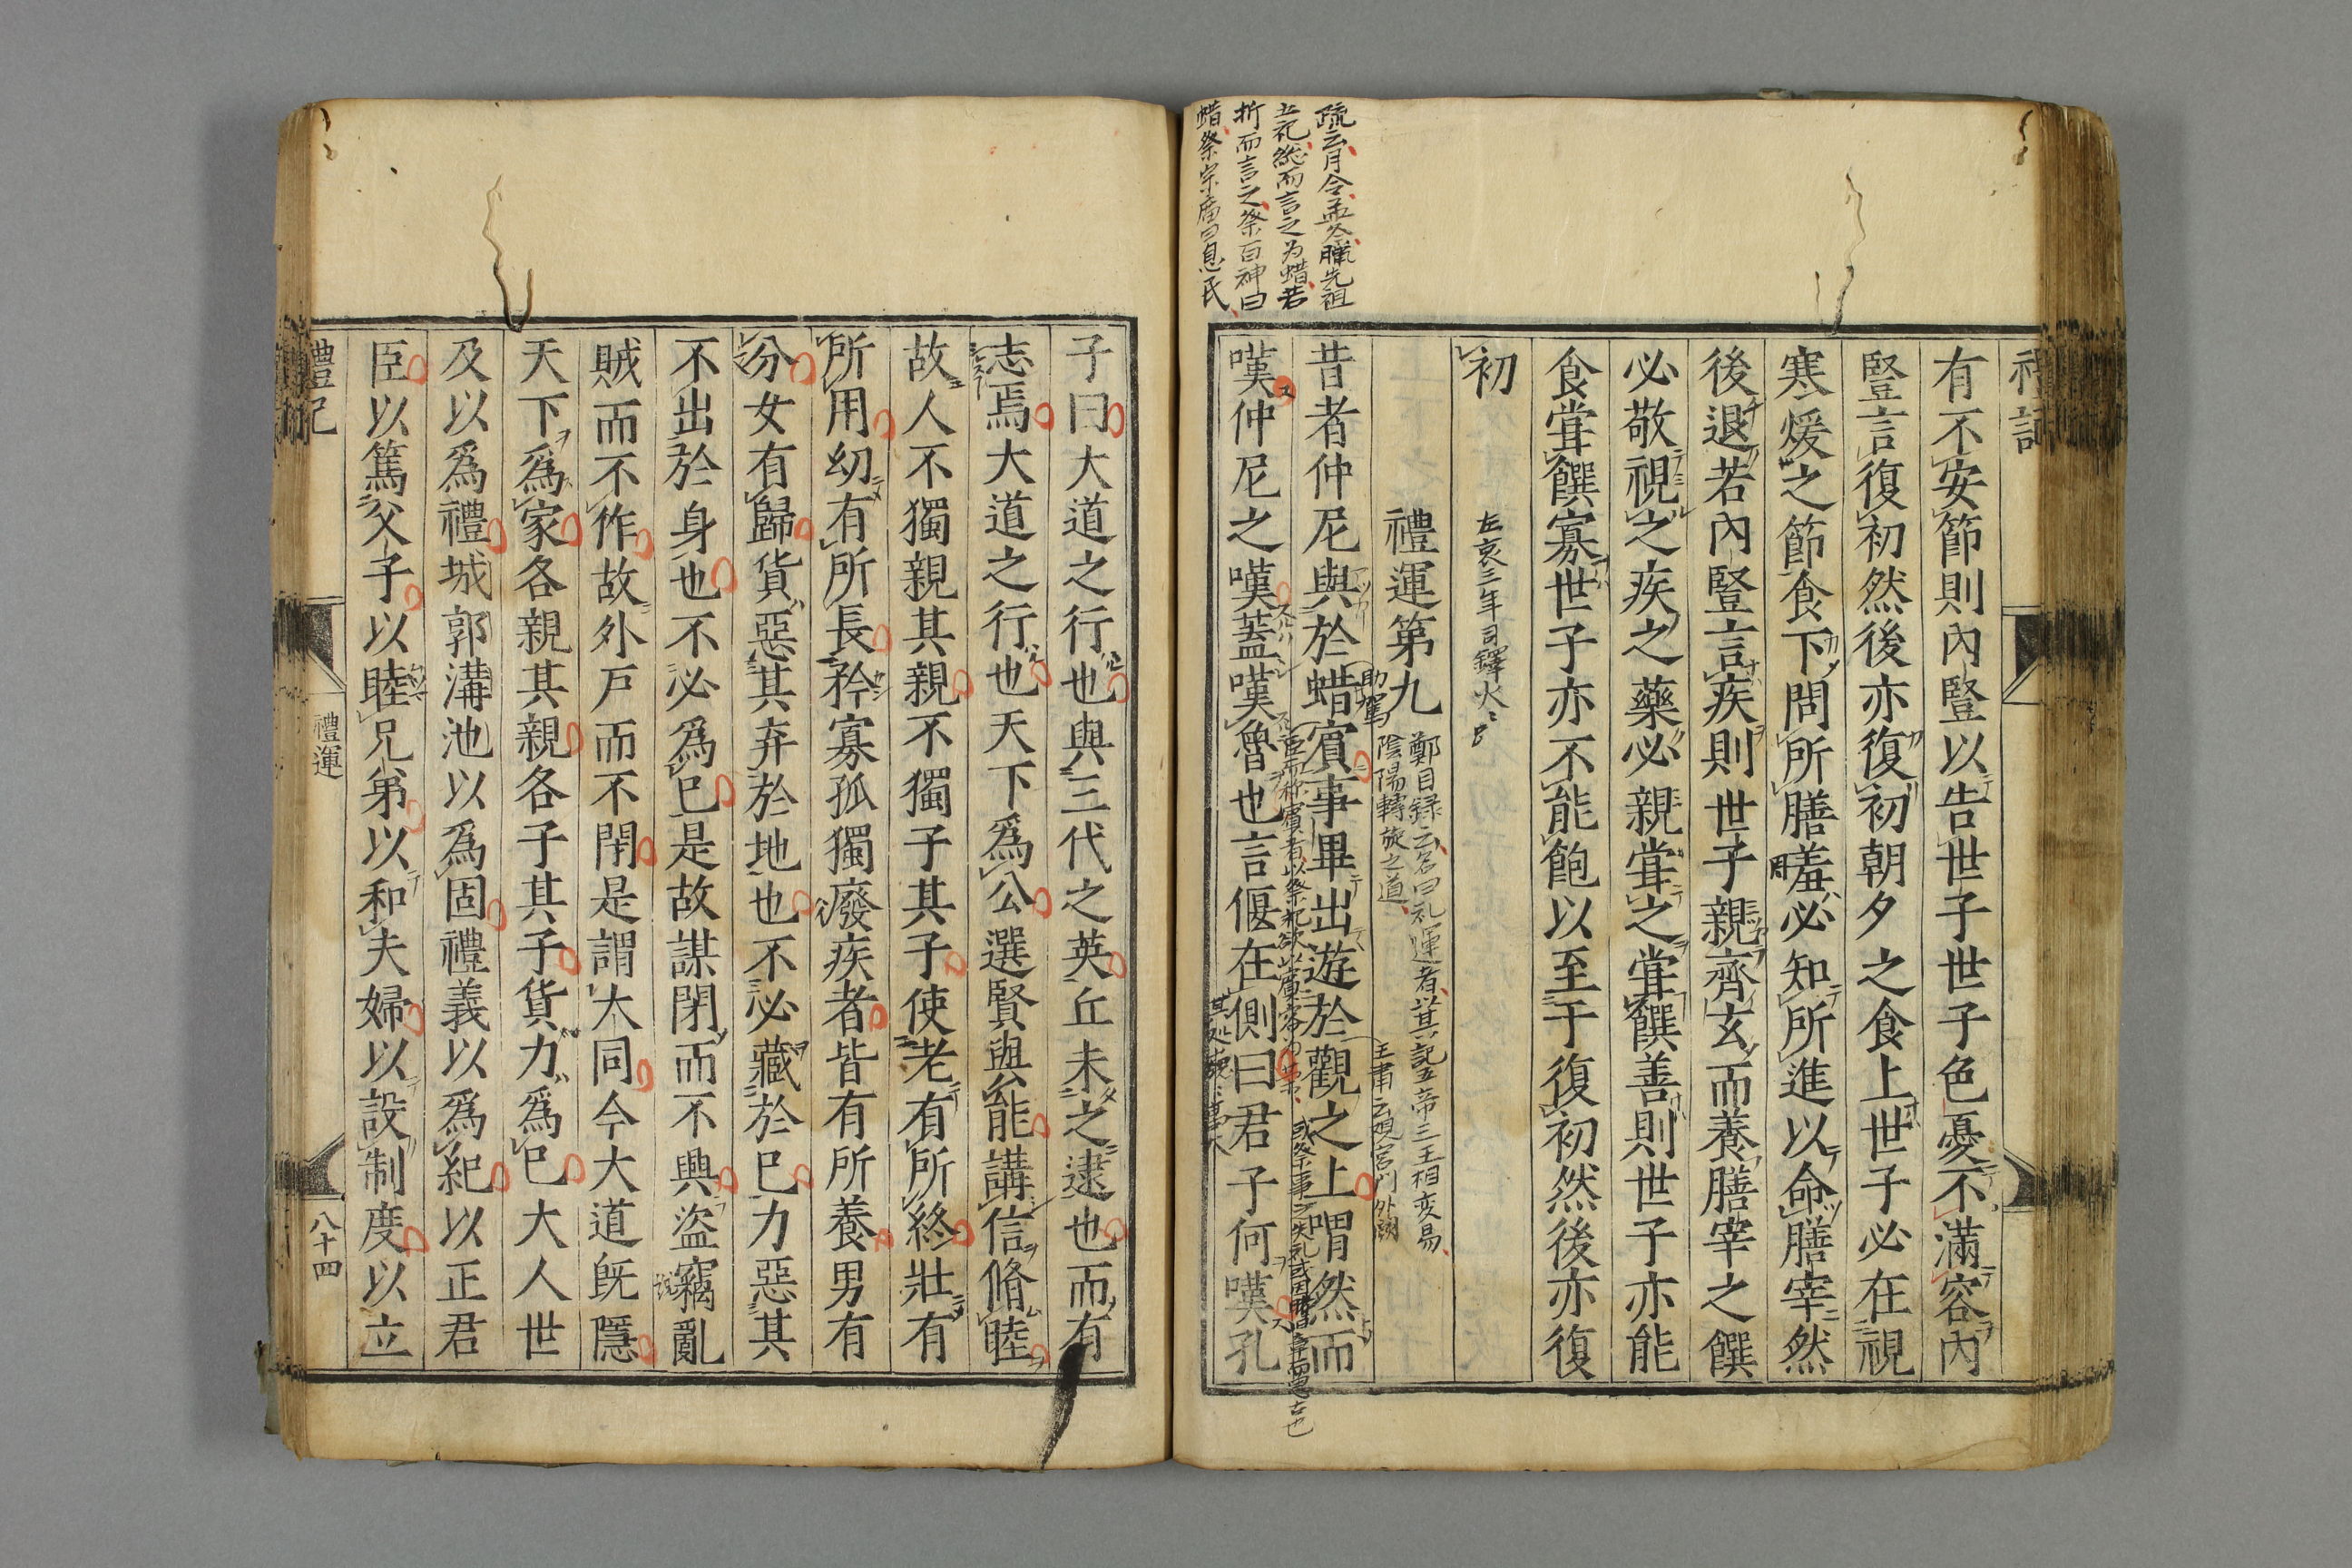 禮記
有不安節則內豎以告世子世子色憂不滿容內
豎言復初然後亦復初朝夕之食上世子必在視
寒煖之節食下問所膳羞必知所進以命膳宰然
後退若內豎言疾則世子親齊玄而養膳宰之饌
必敬視之疾之藥必親甞之甞饌善則世子亦能
食甞饌寡世子亦不能飽以至于復初然後亦復
初
左哀三年司鐸火
禮運第九
鄭目録云名曰礼運者以其記五帝三王相变易
陰陽轉旋之道
疏云月令孟冬臘先祖
五祀総而言之为蜡若
析而言之祭百神曰
蜡祭宗庿曰息民
昔者仲尼與於蜡賓事畢出遊於觀之上喟然而
嘆仲尼之嘆蓋嘆魯也言偃在側曰君子何嘆孔
子曰大道之行也與三代之英丘未之逮也而有
志焉大道之行也天下爲公選賢與能講信脩睦
故人不獨親其親不獨子其子使老有所終壯有
所用幼有所長矜寡孤獨廢疾者皆有所養男有
分女有歸貨惡其弃於地也不必藏於已力惡其
不出於身也不必爲已是故謀閉而不興盜竊亂
賊而不作故外戶而不閉是謂大同今大道旣隱
天下爲家各親其親各子其子貨力爲已大人世
及以爲禮城郭溝池以爲固禮義以爲紀以正君
臣以篤父子以睦兄弟以和夫婦以設制度以立
禮記
禮運
八十四